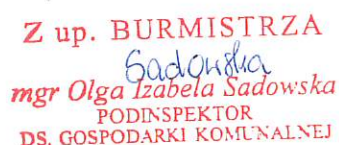 Z up. BURMISTRZA
Sadowska
mgr Olga Izabela Sadowska
PODINSPEKTOR
DS. GOSPODARKI KOMUNALNEJ